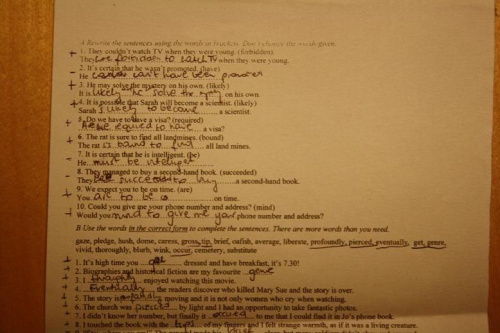 A Rewrite the sentences using the words in brackets. Don't change the words given.
+ 1. They couldn't watch TV when they were young. (forbidden)
They were forbidden to watch TV when they were young.
2. It's certain that he wasn't promoted. (have)
- He can't have been promoted
+ 3. He may solve the mystery on his own. (likely)
It is likely he solve the on his own.
+ 4. It is possible that Sarah will become a scientist. (likely)
Sarah likely to become a scientist.
5. Do we have to have a visa? (required)
required to have a visa?
+ 6. The rat is sure to find all landmines. (bound)
The rat is bound to find all land mines.
7. It is certain that he is intelligent. (be)
- He must be intelligent
8. They managed to buy a second-hand book. (succeeded)
- They to buy a second-hand book.
9. We expect you to be on time. (are)
+ You are to be on time.
10. Could you give me your phone number and address? (mind)
+ Would you mind to give me your phone number and address?
B Use the words in the correct form to complete the sentences. There are more words than you need.
gaze, pledge, hush, dome, caress, gross, tip, brief, oafish, average, liberate, profoundly, pierced, eventually, get, genre,
vivid, thoroughly, blurb, wink, occur, cemetery, substitute
+ 1. It's high time you got dressed and have breakfast, it's 7.30!
+ 2. Biographies and historical fiction are my favourite genre
+ 3. I enjoyed watching this movie.
+ 4. Eventually, the readers discover who killed Mary Sue and the story is over.
+ 5. The story is moving and it is not only women who cry when watching.
+ 6. The church was pierced by light and I had an opportunity to take fantastic photos.
+ 7. I didn't know her number, but finally it occured to me that I could find it in Jo's phone book.
+ 8. I touched the book with the tips of my fingers and I felt strange warmth, as if it was a living creature.